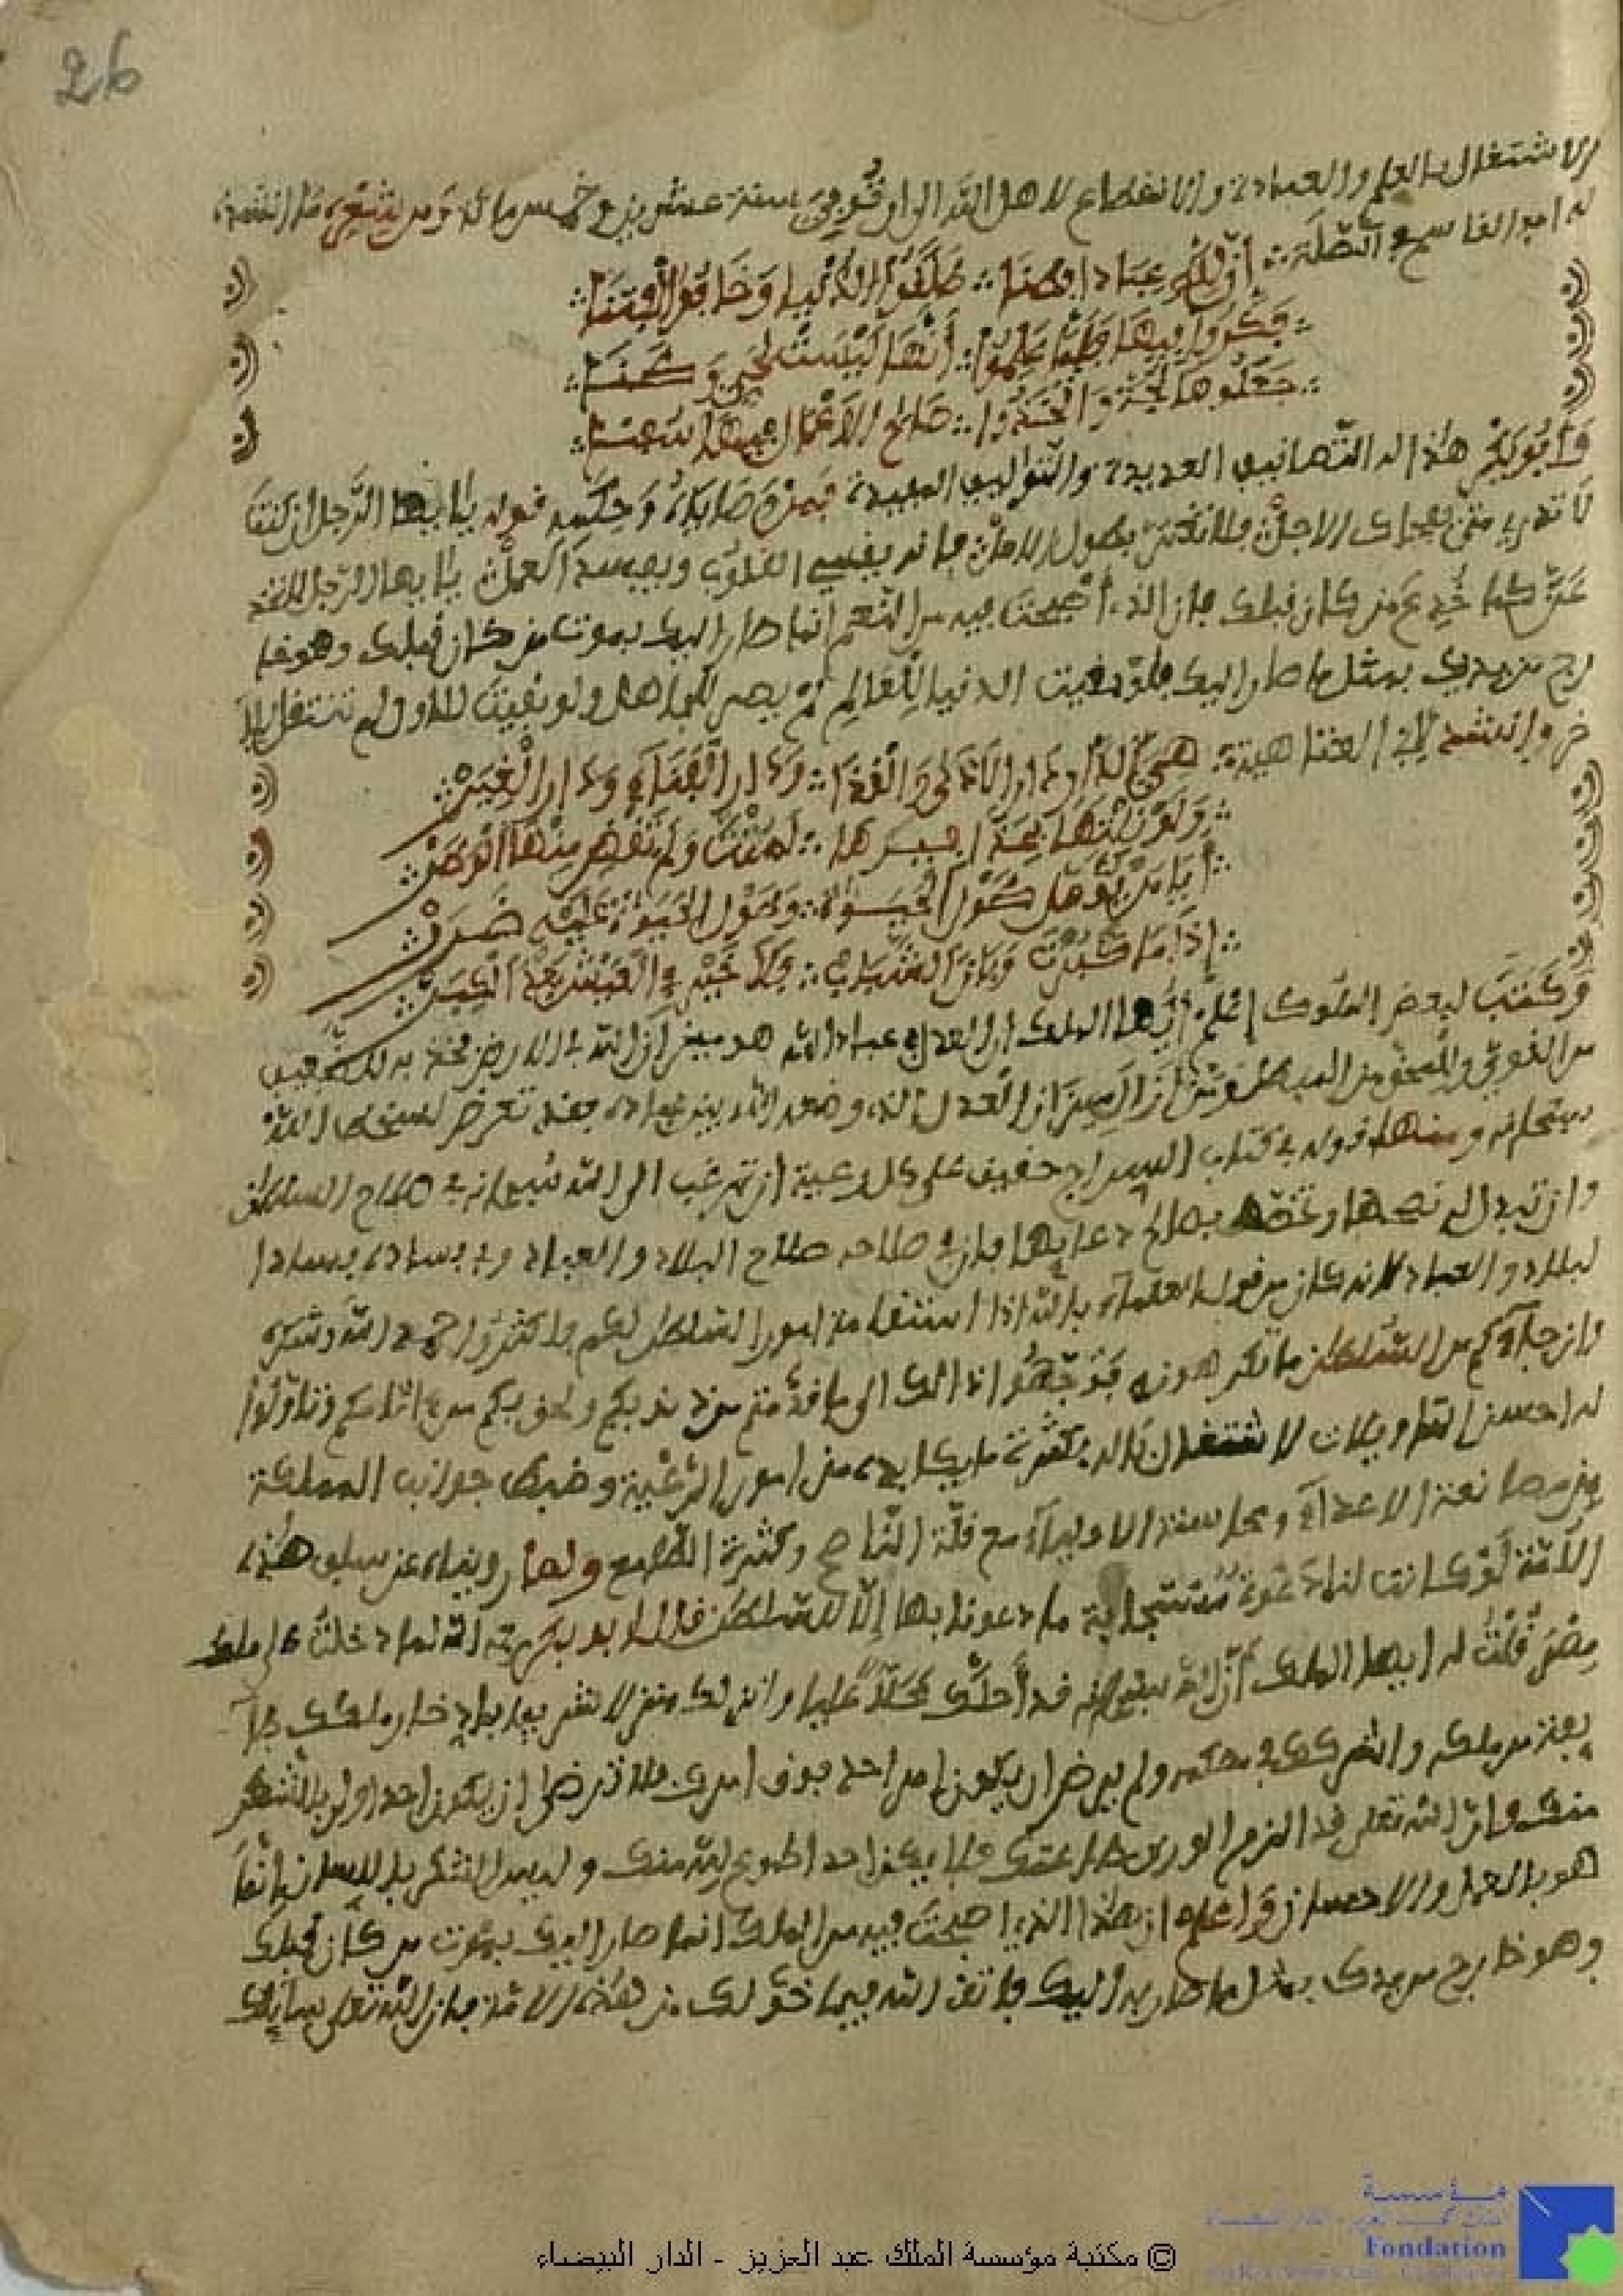 26
الاشتغال بالعلم والعبادة والانقطاع لاهل الله الى ان توفي سنة عشرين وخمس مائة ومن شعره ما انشده
له ابو القاسم في الصلة ∴ ان لله عبادا فطنا ∴ طلقوا الدنيا وخافوا الفتنا ∴
∴ فكروا فيها فلما علموا ∴ انها ليست لحي وطنا ∴
∴ جعلوها لجة واتخذوا ∴ صالح الاعمال فيها سفنا ∴
وابو بكر هذا له التصانيف العديدة والتواليف المفيدة فمن وصاياه وحكمه قوله يا ايها الرجل ان كنت
لا تدري متى يفجاك الاجل فلا تغتر بطول الامل فانه يقسي القلوب ويفسد العمل يا ايها الرجل لا تخد
عن كما خدع من كان قبلك فان الذي اصبحت فيه من النعم انما صار اليك بموت من كان قبلك وهو خا
رج من يدك بمثل ما صار اليك فلو بقيت الدنيا للعالم لم يصر للجاهل ولو بقيت للاول لم تنتقل للا
خر وانشد لابي العتاهية ∴ هي الدار دار الاذى والقذا ∴ ودار الفناء ودار الغير ∴
∴ ولو نلتها بحذافيرها ∴ لمت ولم تقض منها الوطر ∴
∴ ايا من يؤمل طول الحيوة ∴ وطول الحيوة عليه ضرر ∴
∴ اذا ما كبرت وبان الشباب ∴ فلا خير في العيش بعد الكبر ∴
وكتب لبعض الملوك اعلم ايها الملك ان العدل في عباد الله هو ميزان الله في الارض يوخذ به للضعيف
من القوي والمحق من المبطل ومن ازال ميزان العدل الذي وضعه الله بين عباده فقد تعرض لسخط الله
سبحانه ومنها قوله في كتاب السراج حقيق على كل رعية ان ترغب الى الله سبحانه في صلاح السلطان
وان تبدل له نصحها وتخصه بصالح دعائها فان في صلاحه صلاح البلاد والعباد وفي فساده فساد ا
لبلاد والعباد لانه كان من قول العلماء بالله اذا استقامة امور السلطان لكم فاكثروا حمد الله وشكره
وان جاءكم من السلطان ما تكرهونه فوجهوا ذالك الى ما قدمتم من ذنوبكم ولحق بكم من اثامكم وتاولوا
له احسن التاويلات لاشتغال باله بكثرة ما يكابده من امور الرعية وضبط جوانب المملكة
من مصانعة الاعداء ومحاسنة الاولياء مع قلة الناصح وكثرة الطامع ولما روينا عن سلف هذه
الامة لو كانت لنا دعوة مستجابة ما دعونا بها الا للسلطان قال ابو بكر رحمه الله لما دخلت على ملك
مصر قلت له ايها الملك ان الله سبحانه قد احلك محلا عليا وانزلك منزلا شريفا بادخاره ملكك طا
يفة من ملكه واشركك في حكمه ولم يرض ان يكون امر احد فوق امرك فلا ترضى ان يكون احد اولى بالشكر
منك وان الله تعلى قد الزم الورى طاعتك فلا يكن احد اطوع لله منك وليس الشكر باللسان وانما
هو بالعمل والاحسان واعلم ان هذا الذي اصبحت فيه من الملك انما صار اليك بموت من كان قبلك
وهو خارج من يدك بمثل ما صار به اليك فاتق الله فيما خولك من هذه الامة فان الله تعلى سايلك
© مكتبة مؤسسة الملك عبد العزيز - الدار البيضاء
مؤسسة
Fondation